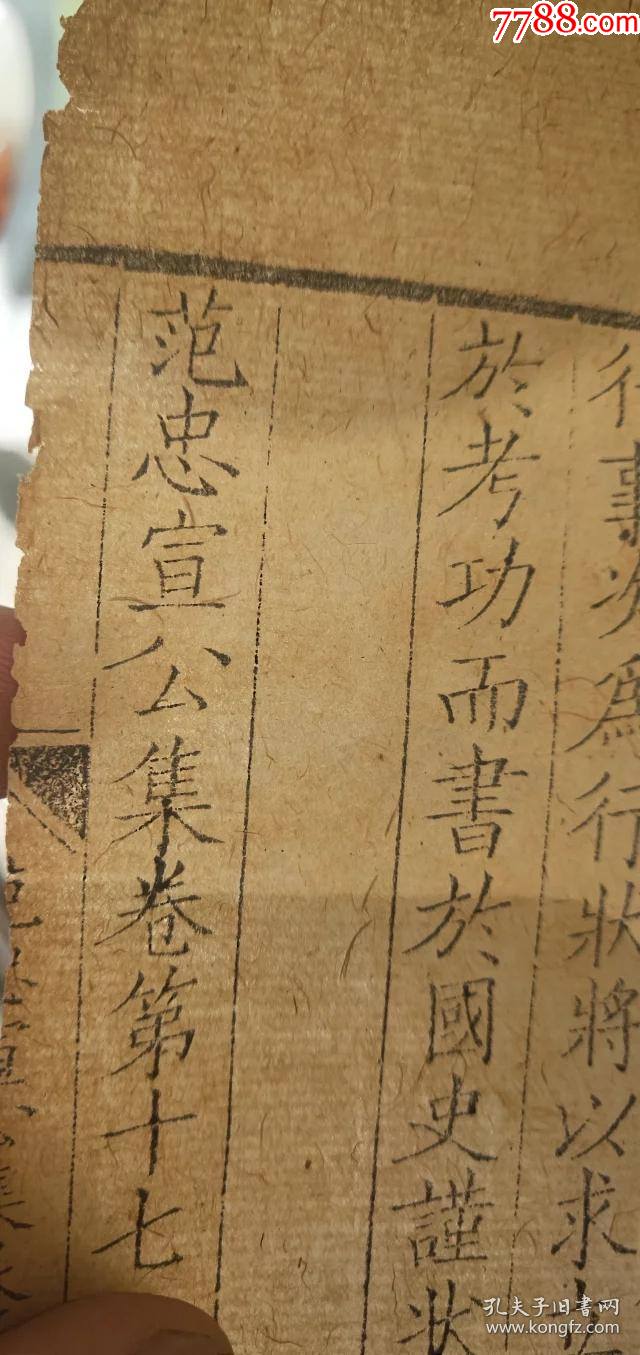 7788.com
行事次為行狀將以求
於考功而書於國史謹狀
范忠宣公集卷第十七
孔夫子旧书网
www.kongfz.com